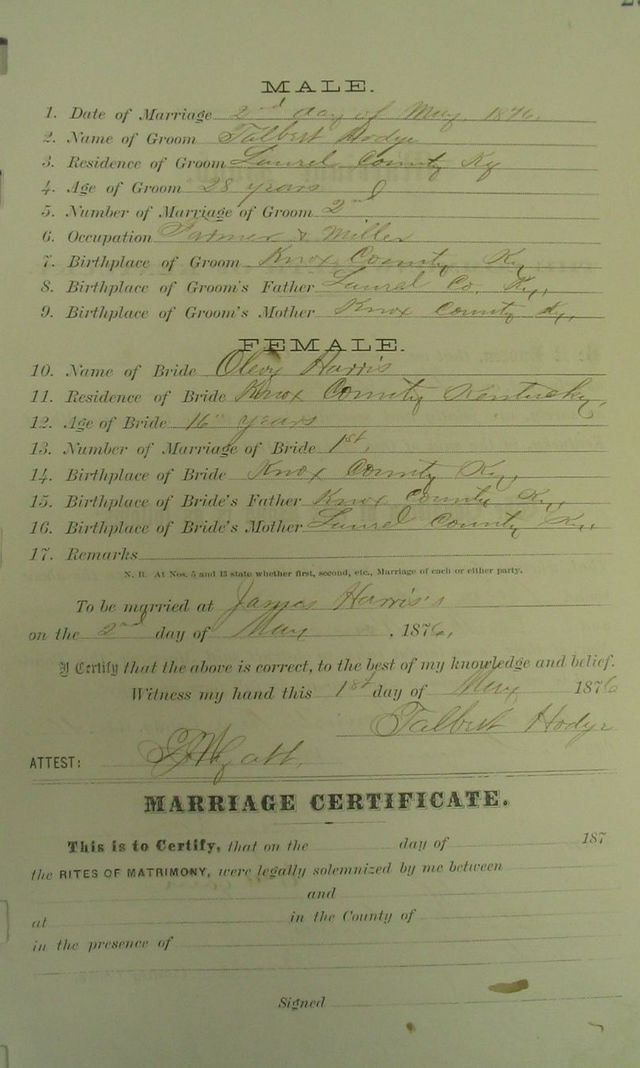 MALE.
1. Date of Marriage 2nd day of May, 1876.
2. Name of Groom Talbert Hodge
3. Residence of Groom Laurel County Ky
4. Age of Groom 28 years
5. Number of Marriage of Groom 2nd
6. Occupation Farmer & Miller
7. Birthplace of Groom Knox County Ky,
8. Birthplace of Groom's Father Laurel Co. Ky,
9. Birthplace of Groom's Mother Knox County Ky,
FEMALE.
10. Name of Bride Harris
11. Residence of Bride Knox County Kentucky,
12. Age of Bride 16" years
13. Number of Marriage of Bride 1st,
14. Birthplace of Bride Knox County Ky,
15. Birthplace of Bride's Father Knox County Ky,
16. Birthplace of Bride's Mother Laurel County Ky,
17. Remarks
N. B. At Nos. 5 and 13 state whether first, second, etc., Marriage of each or either party.
To be married at James Harris's
on the 2nd day of May , 1876,
I Certify that the above is correct, to the best of my knowledge and belief.
Witness my hand this 1st day of May 1876
Talbert Hodge
ATTEST:
MARRIAGE CERTIFICATE.
This is to Certify, that on the day of 187
the RITES OF MATRIMONY, were legally solemnized by me between
and
at in the County of
in the presence of
Signed